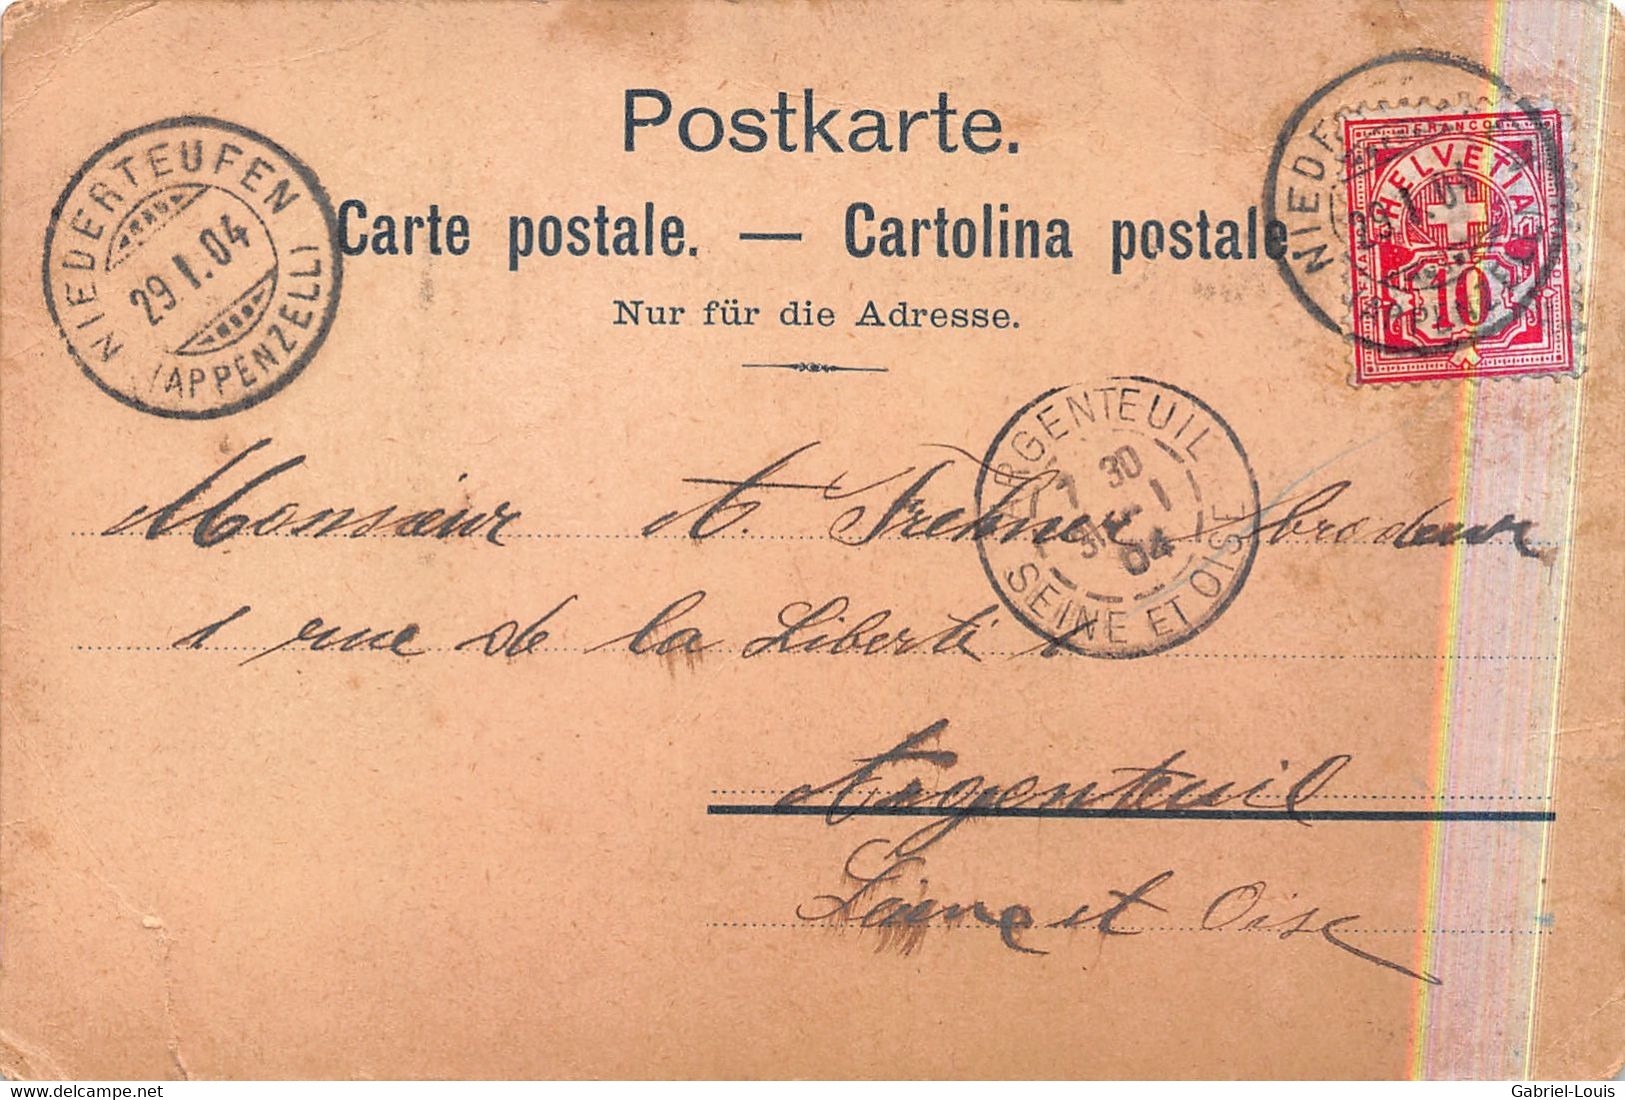 Postkarte.
Carte postale. — Cartolina postale.
Nur für die Adresse.
NIEDERTEUFEN
29.I.04
(APPENZELL)
FRANCO
HELVETIA
10
29.I.04
ARGENTEUIL
7 30
31 - 1
04
SEINE ET OISE
Monsieur A. Frehner brodeur
1 rue de la Liberté
Argenteuil
Seine et Oise
delcampe.net
Gabriel-Louis